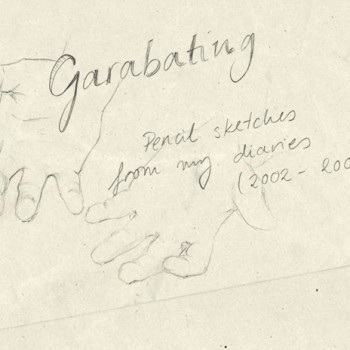 Garabating
Pencil sketches
from my diaries
(2002 - 200